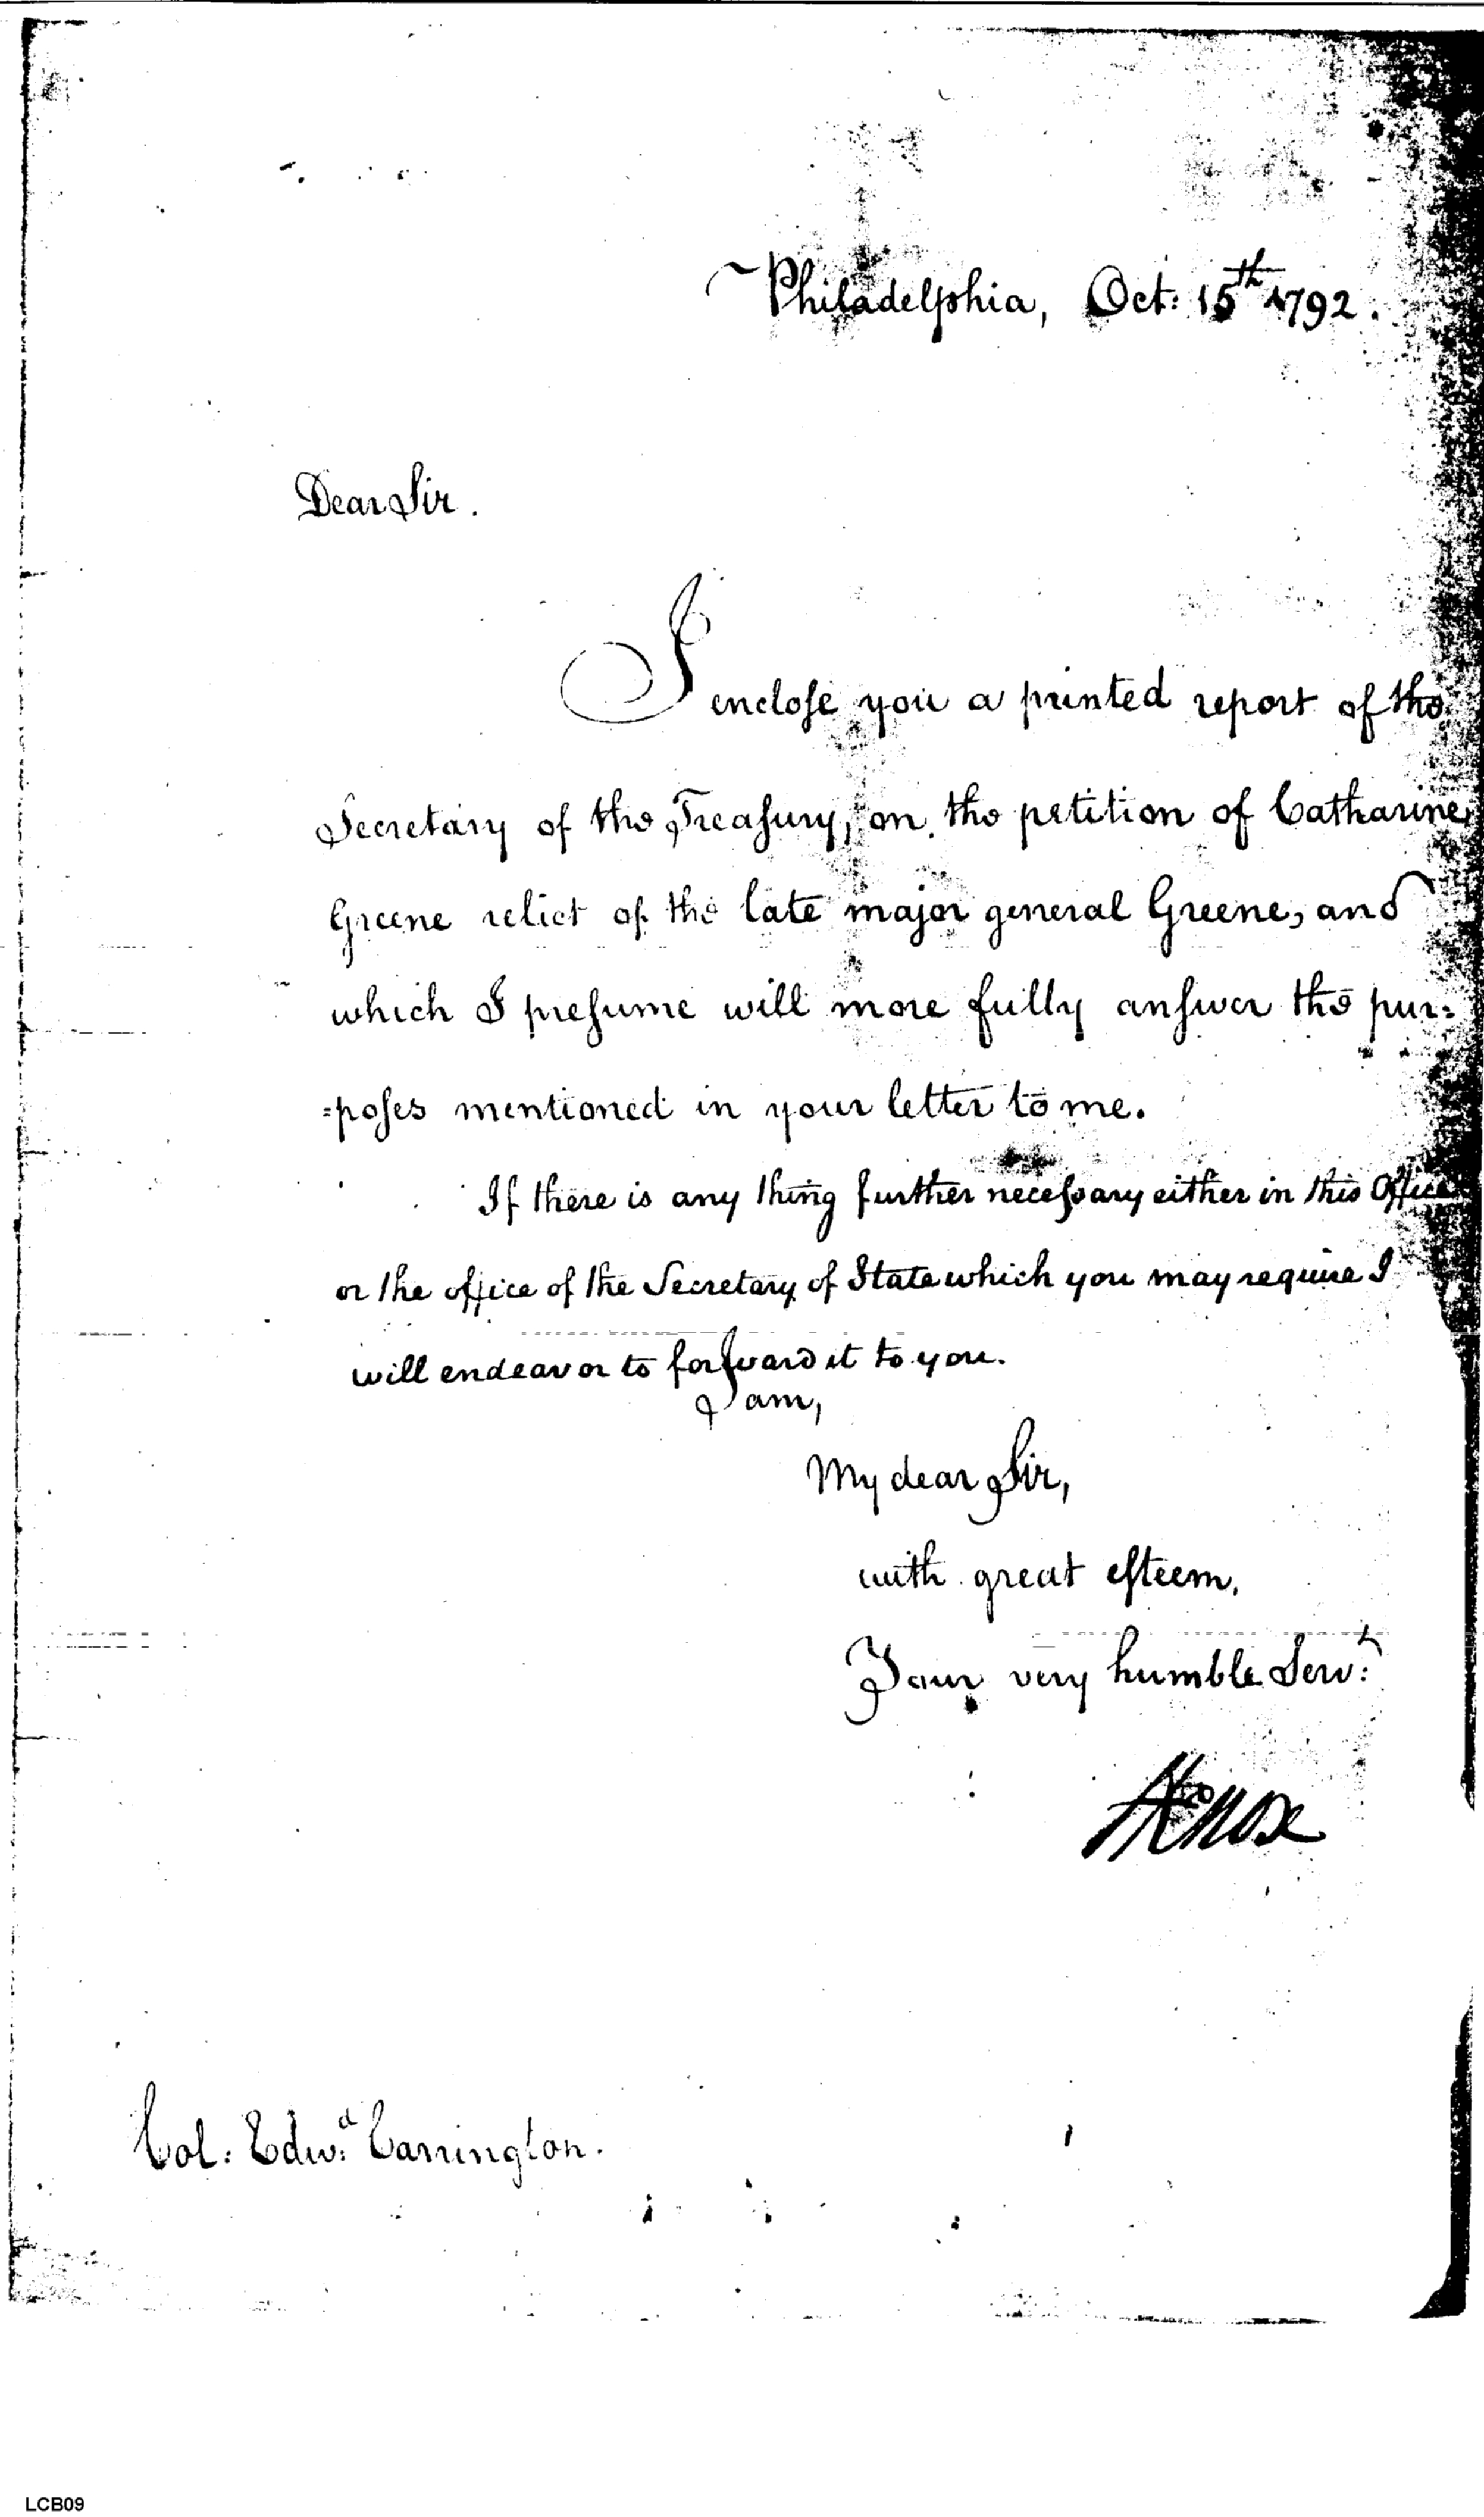 Philadelphia, Oct: 15th 1792.
Dear Sir.
I enclose you a printed report of the
Secretary of the Treasury, on the petition of Catharine
Greene relict of the late major general Greene, and
which I presume will more fully answer the pur=
=poses mentioned in your letter to me.
If there is any thing further necessary either in this Office
or the office of the Secretary of State which you may require I
will endeavor to forward it to you.
I am,
My dear Sir,
with great esteem,
Your very humble Servt:
HKnox
Col: Edwd: Carrington.
LCB09